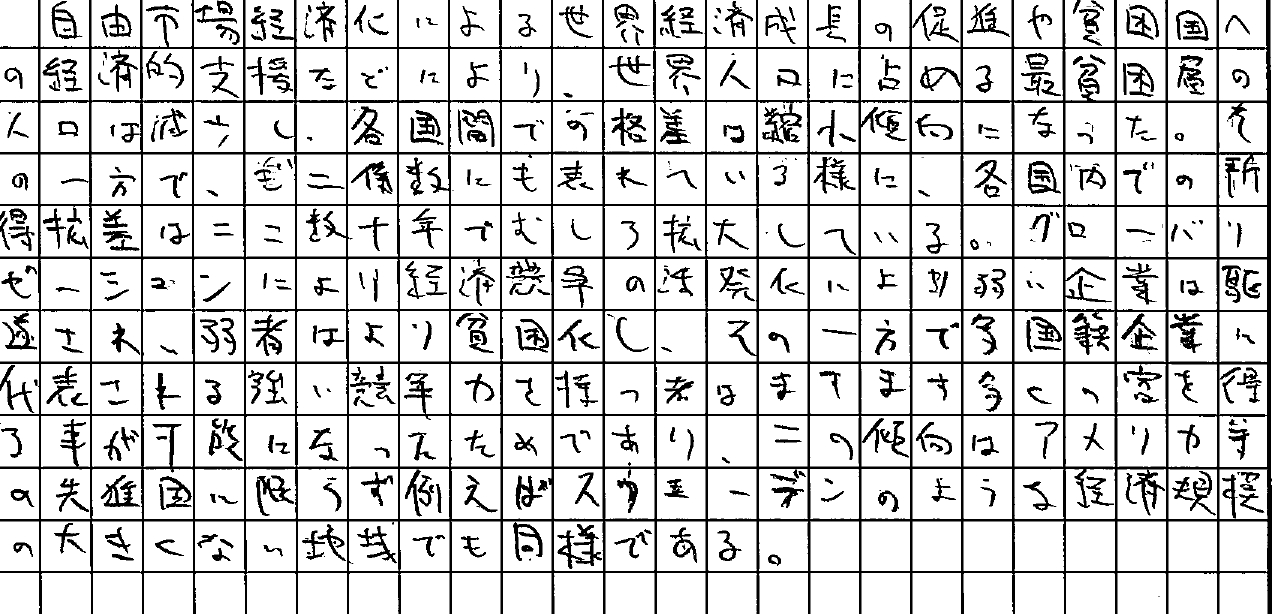 自由市場経済化による世界経済成長の促進や貧困国へ
の経済的支援などにより、世界人口に占める最貧困層の
人口は減少し、各国間での格差は縮小傾向になった。そ
の一方で、ジニ係数にも表れている様に、各国内での所
得拡差はここ数十年でむしろ拡大している。グローバリ
ゼーションにより経済競争の活発化により弱い企業は駆
逐され、弱者はより貧困化し、その一方で多国籍企業に
代表される強い競争力を持つ者はますます多くの富を得
る事が可能になったためであり、この傾向はアメリカ等
の先進国に限らず例えばスウェーデンのような経済規模
の大きくない地域でも同様である。